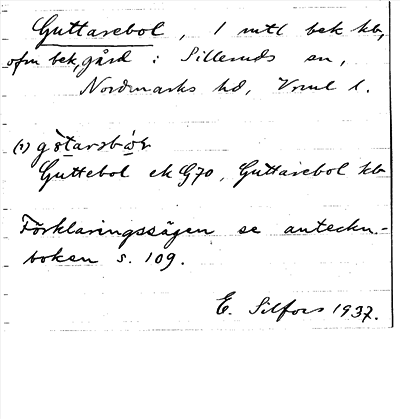 Guttarebol, 1 mtl bek kb,
ofm bek, gård i Silleruds sn,
Nordmarks hd, Vrml l.
(1) götarsbòr
Guttebol ek G70, Guttarebol kb
Förklaringssägen se anteckn.-
boken s. 109.
E. Silfors 1937.